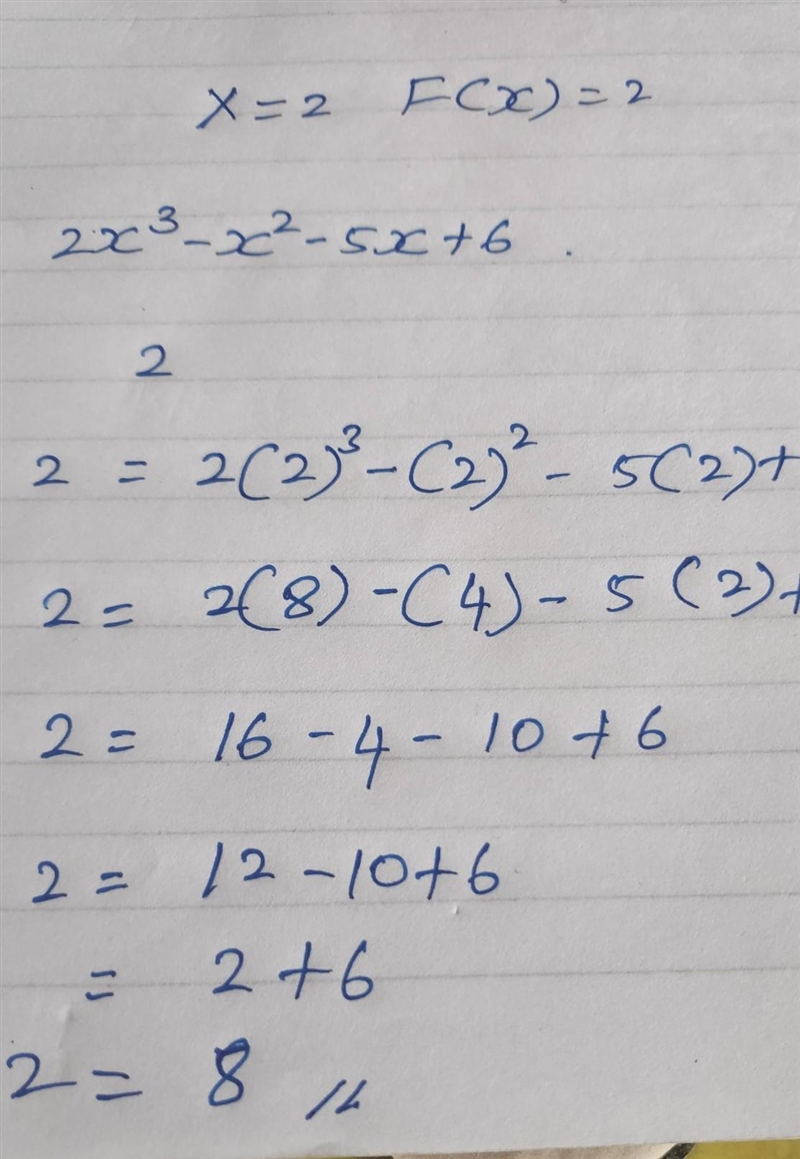 X = 2 F(x) = 2
2x³ - x² - 5x + 6 .
2
2 = 2(2)³ - (2)² - 5(2) +
2 = 2(8) - (4) - 5 (2) +
2 = 16 - 4 - 10 + 6
2 = 12 - 10 + 6
= 2 + 6
2 = 8 //